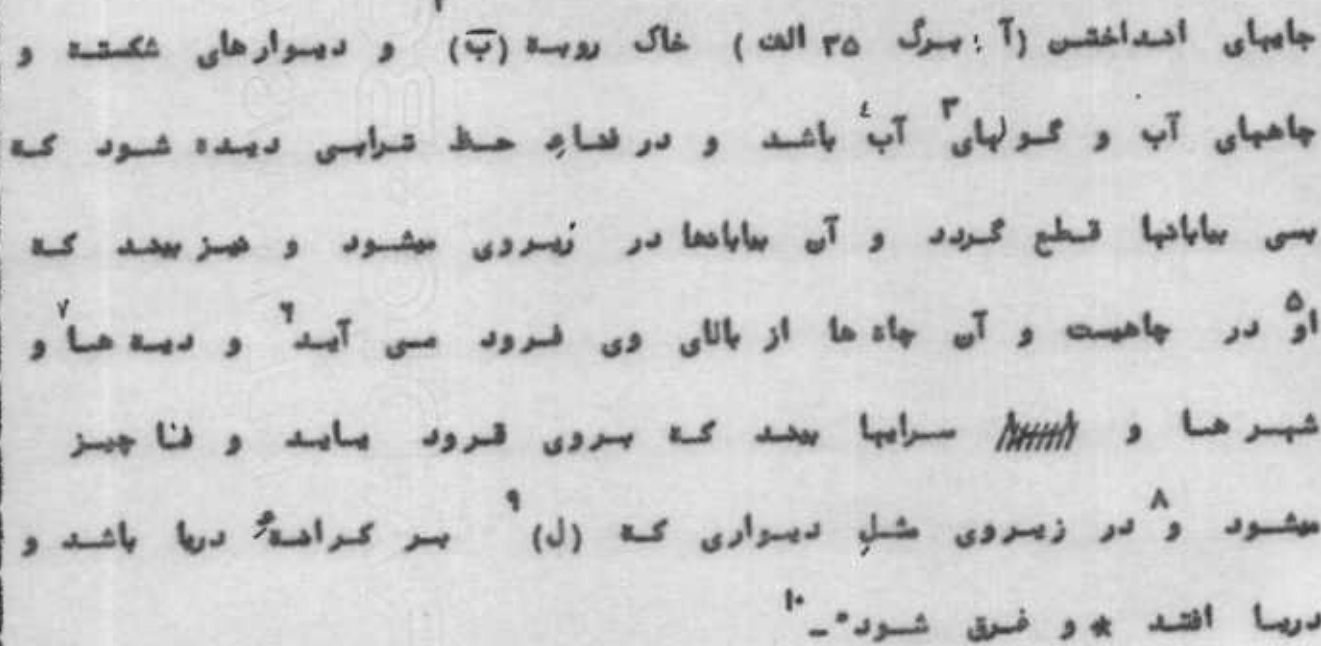 جایهای انداختن (آ : برگ ۳۵ الف) خاک روبه (ب) و دیوارهای شکسته و
چاههای آب و گولهای۳ آب۴ باشد و در فناءِ حظ ترابی دیده شود که
بسی بیابانها قطع گردد و آن بیابانها در زیروی میشود و نیز بیند که
او۵ در چاهیست و آن چاه ها از بالای وی فرود می آید۶ و دیه ها۷ و
شهر ها و سرایها بیند که بروی فرود بیاید و فنا چیز
میشود و۸ در زیروی مثلِ دیواری که (ل)۹ بر کرانهٔ دریا باشد و
دریا افتد * و غرق شود*ـ۱۰